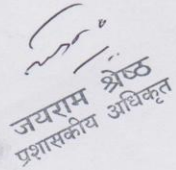 जयराम श्रेष्ठ
प्रशासकीय अधिकृत